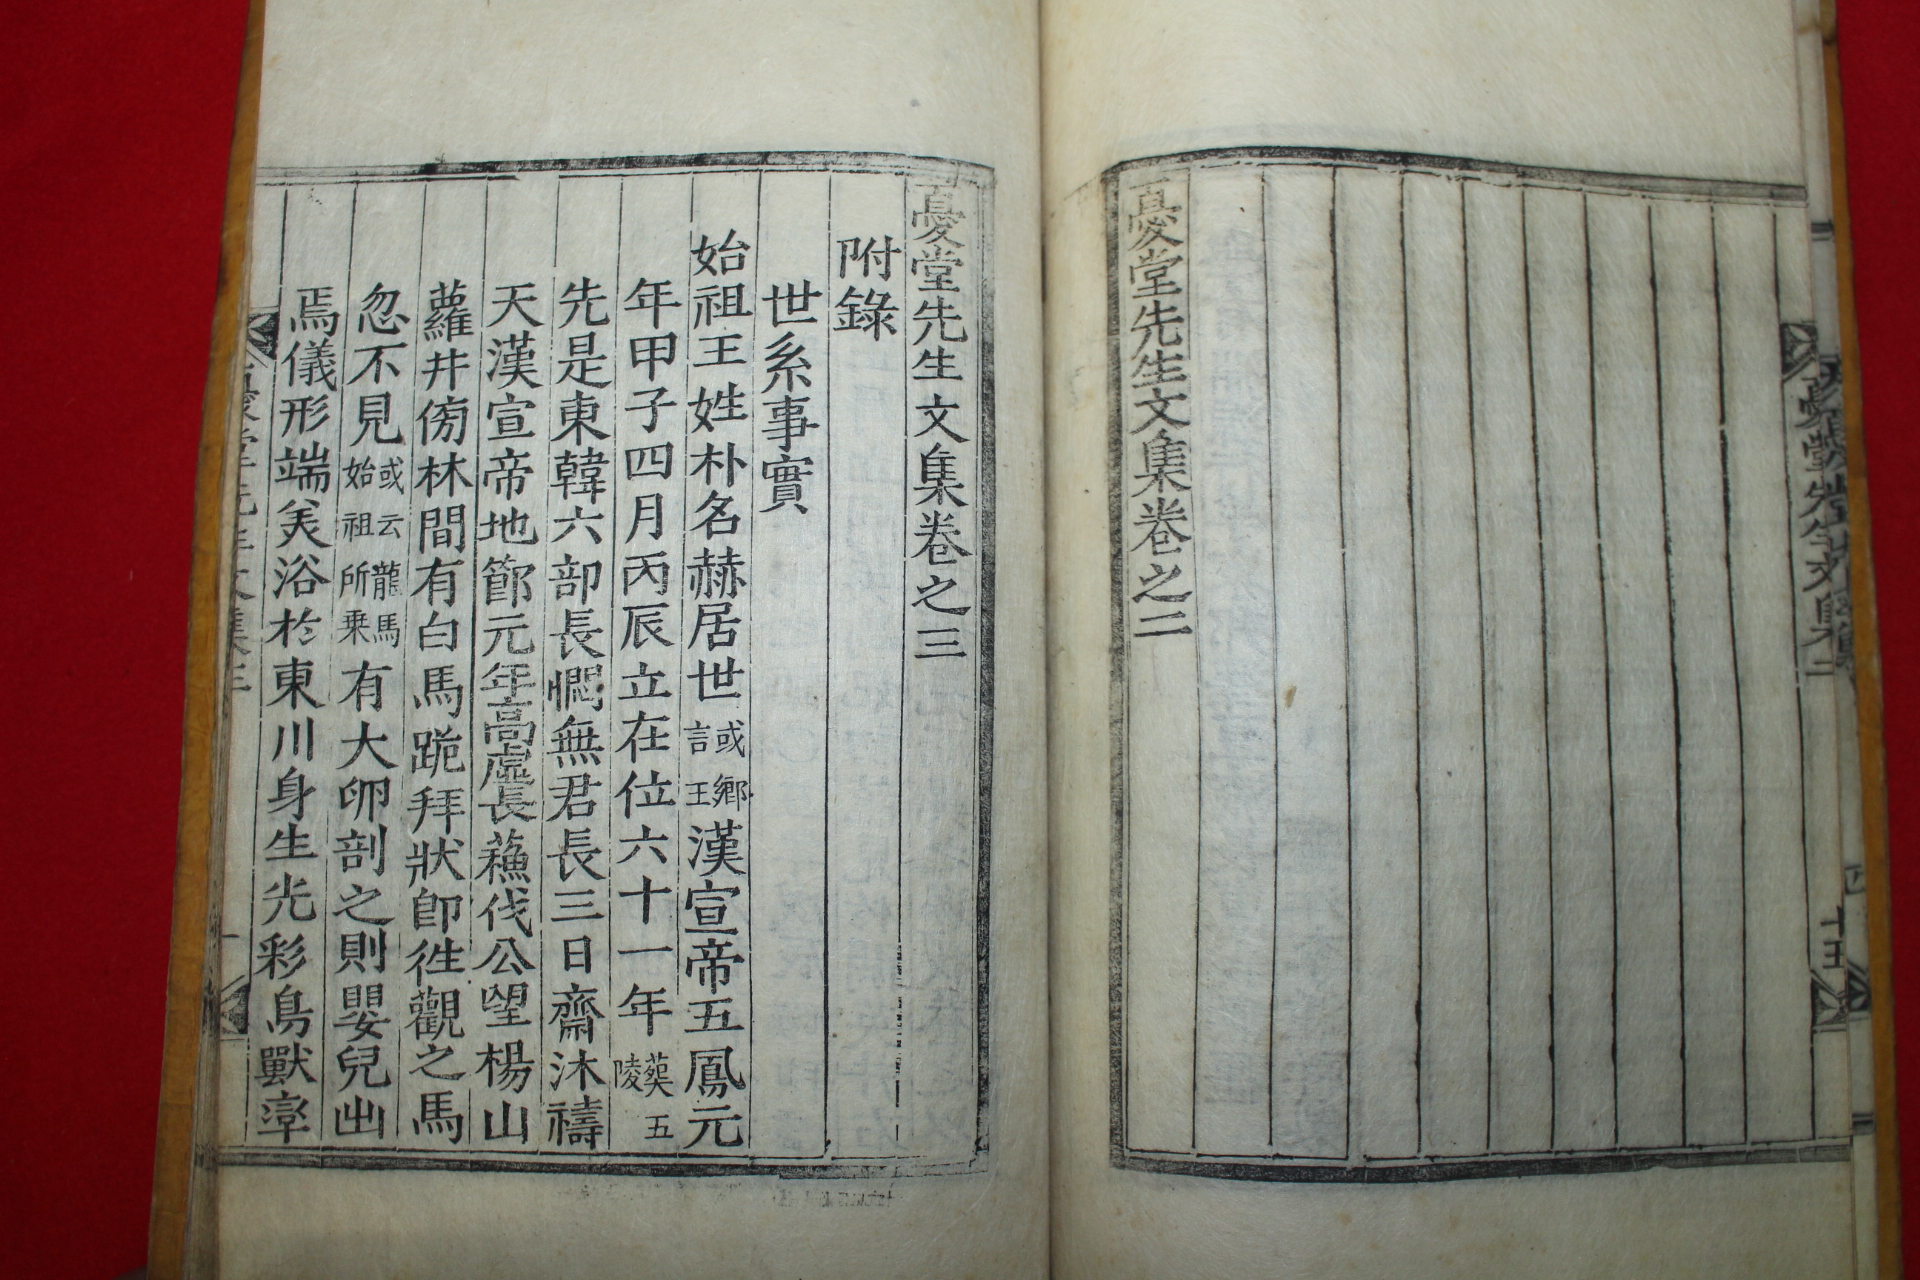 憂堂先生文集卷之二
憂堂先生文集卷之三
附錄
世系事實
始祖王姓朴名赫居世或言鄉王漢宣帝五鳳元
年甲子四月丙辰立在位六十一年葬五陵
先是東韓六部長憫無君長三日齋沐禱
天漢宣帝地節元年高虛長蘓伐公望楊山
蘿井傍林間有白馬跪拜狀卽徃觀之馬
忽不見或云龍馬始祖所乘有大卵剖之則嬰兒出
焉儀形端美浴於東川身生光彩鳥獸率